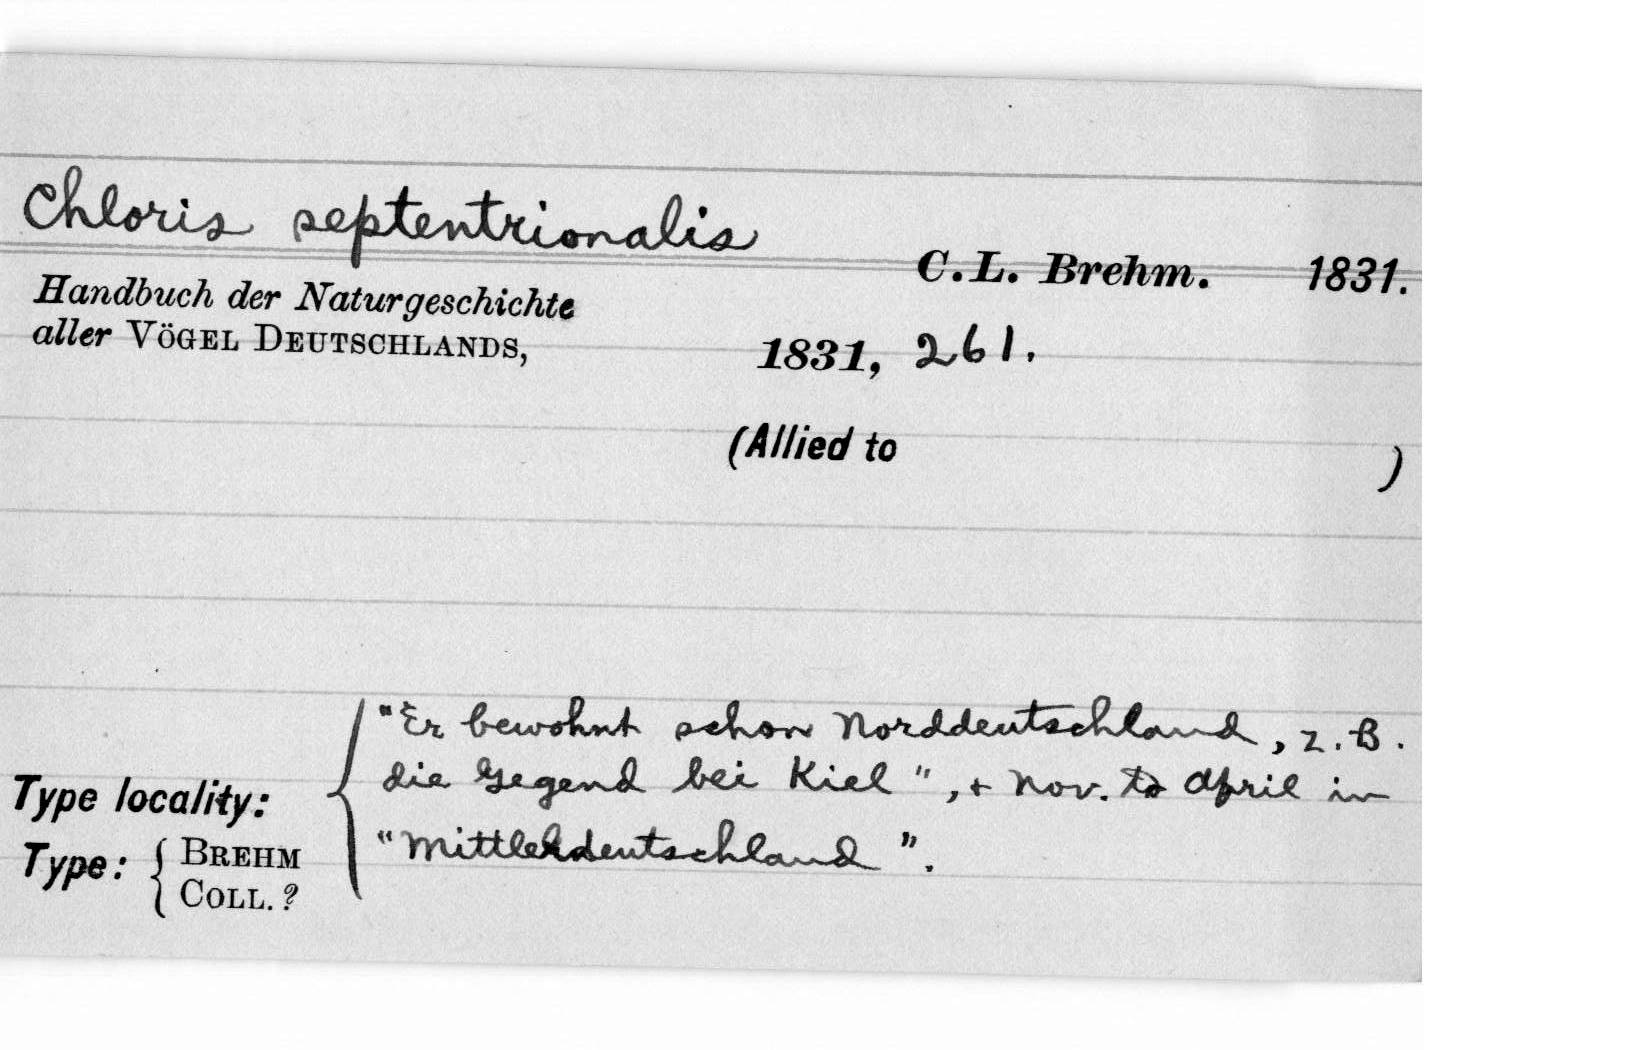 Chloris septentrionalis
C.L. Brehm. 1831.
Handbuch der Naturgeschichte
aller VÖGEL DEUTSCHLANDS, 1831, 261.
(Allied to )
"Er bewohnt schon Norddeutschland, z.B.
die Gegend bei Kiel", + Nov. to April in
"Mittledeutschland".
Type locality:
Type: { BREHM
COLL. ?